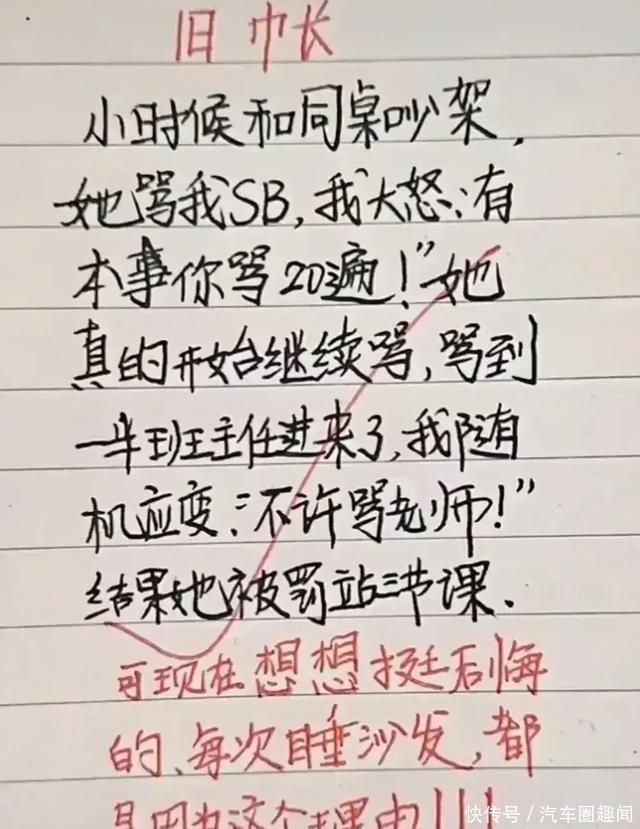 旧巾长
小时候和同桌吵架，
她骂我SB，我大怒：有
本事你骂20遍！”她
真的开始继续骂，骂到
一半班主任进来了，我随
机应变：“不许骂老师！”
结果她被罚站三节课．
可现在想想挺后悔
的、每次睡沙发，都
是因为这个理由！！！
快传号／汽车圈趣闻